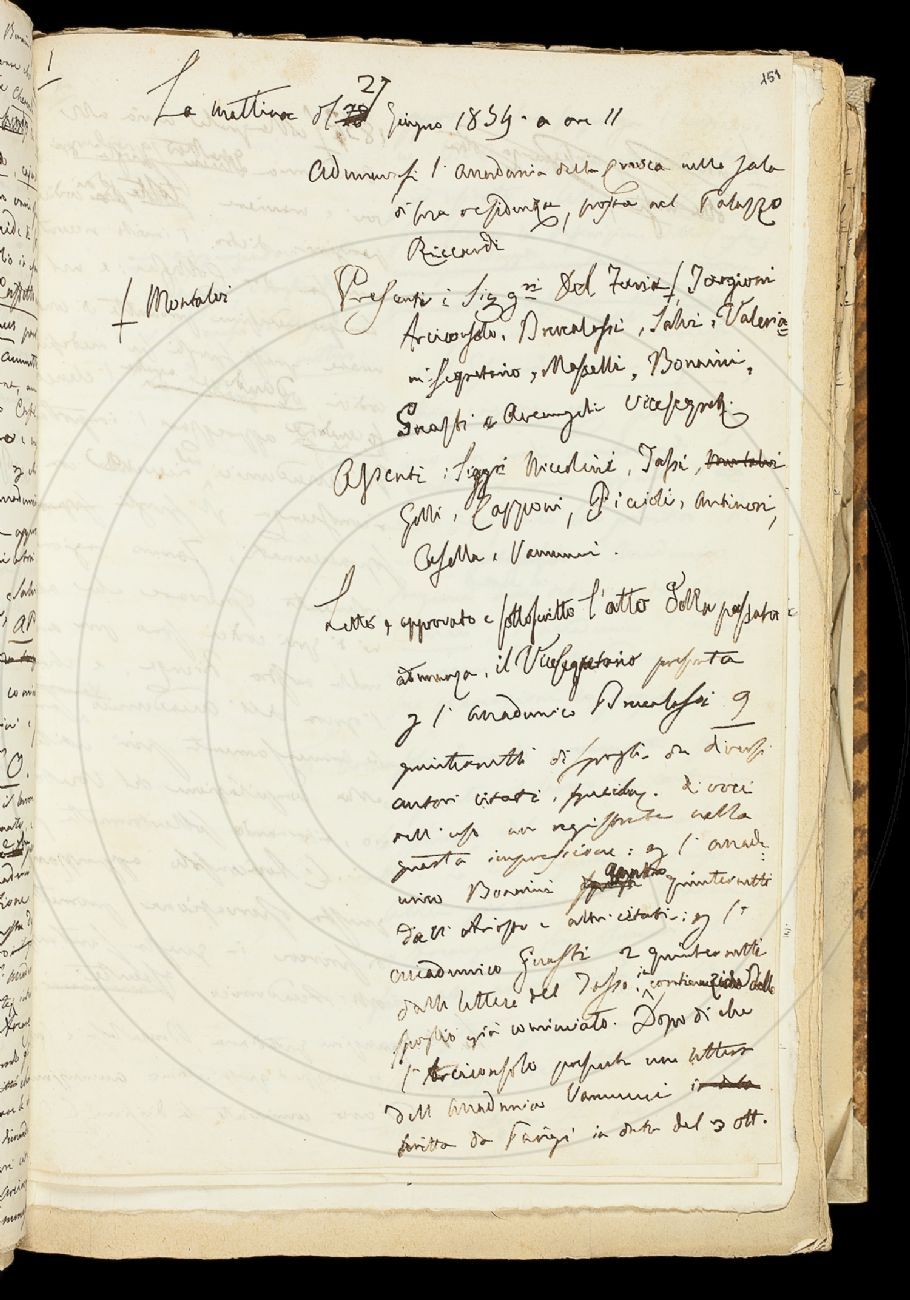 151
27
La mattina del Giugno 1854. a ore 11
Adunavasi l'Accademia della Crusca nella Sala
di sua residenza, posta nel Palazzo
Riccardi
† Montalvi
Presenti i Sigg.ri Del Furia † Targioni
Arciconsolo, Brucalassi, Salvi, Valeria=
ni Segretario, Masselli, Bonnini,
Guasti e Arcangeli Vicesegret.
Assenti i Siggri Niccolini, Tassi, Montalvi
Gelli, Capponi, Piccioli, Antinori,
Casella e Vannucci.
Letto e approvato e sottoscritto l'atto della passata
adunanza, il Vicesegretario presenta
p l'Accademico Brucalassi 9
quinternetti di spoglio da diversi
autori citati, di voci
nell'uso non registrate nella
quarta impressione: p l'Accade=
mico Bonnini quattro quinternetti
dall'Ariosto e altri citati: p l'
Accademico Guasti 2 quinternetti
dalle lettere del Tasso: in continuazione dello
spoglio già cominciato. Dopo di che
l'Arciconsolo presenta una lettera
dell'Accademico Vannucci in data
scritta da Parigi in data del 3 ott.